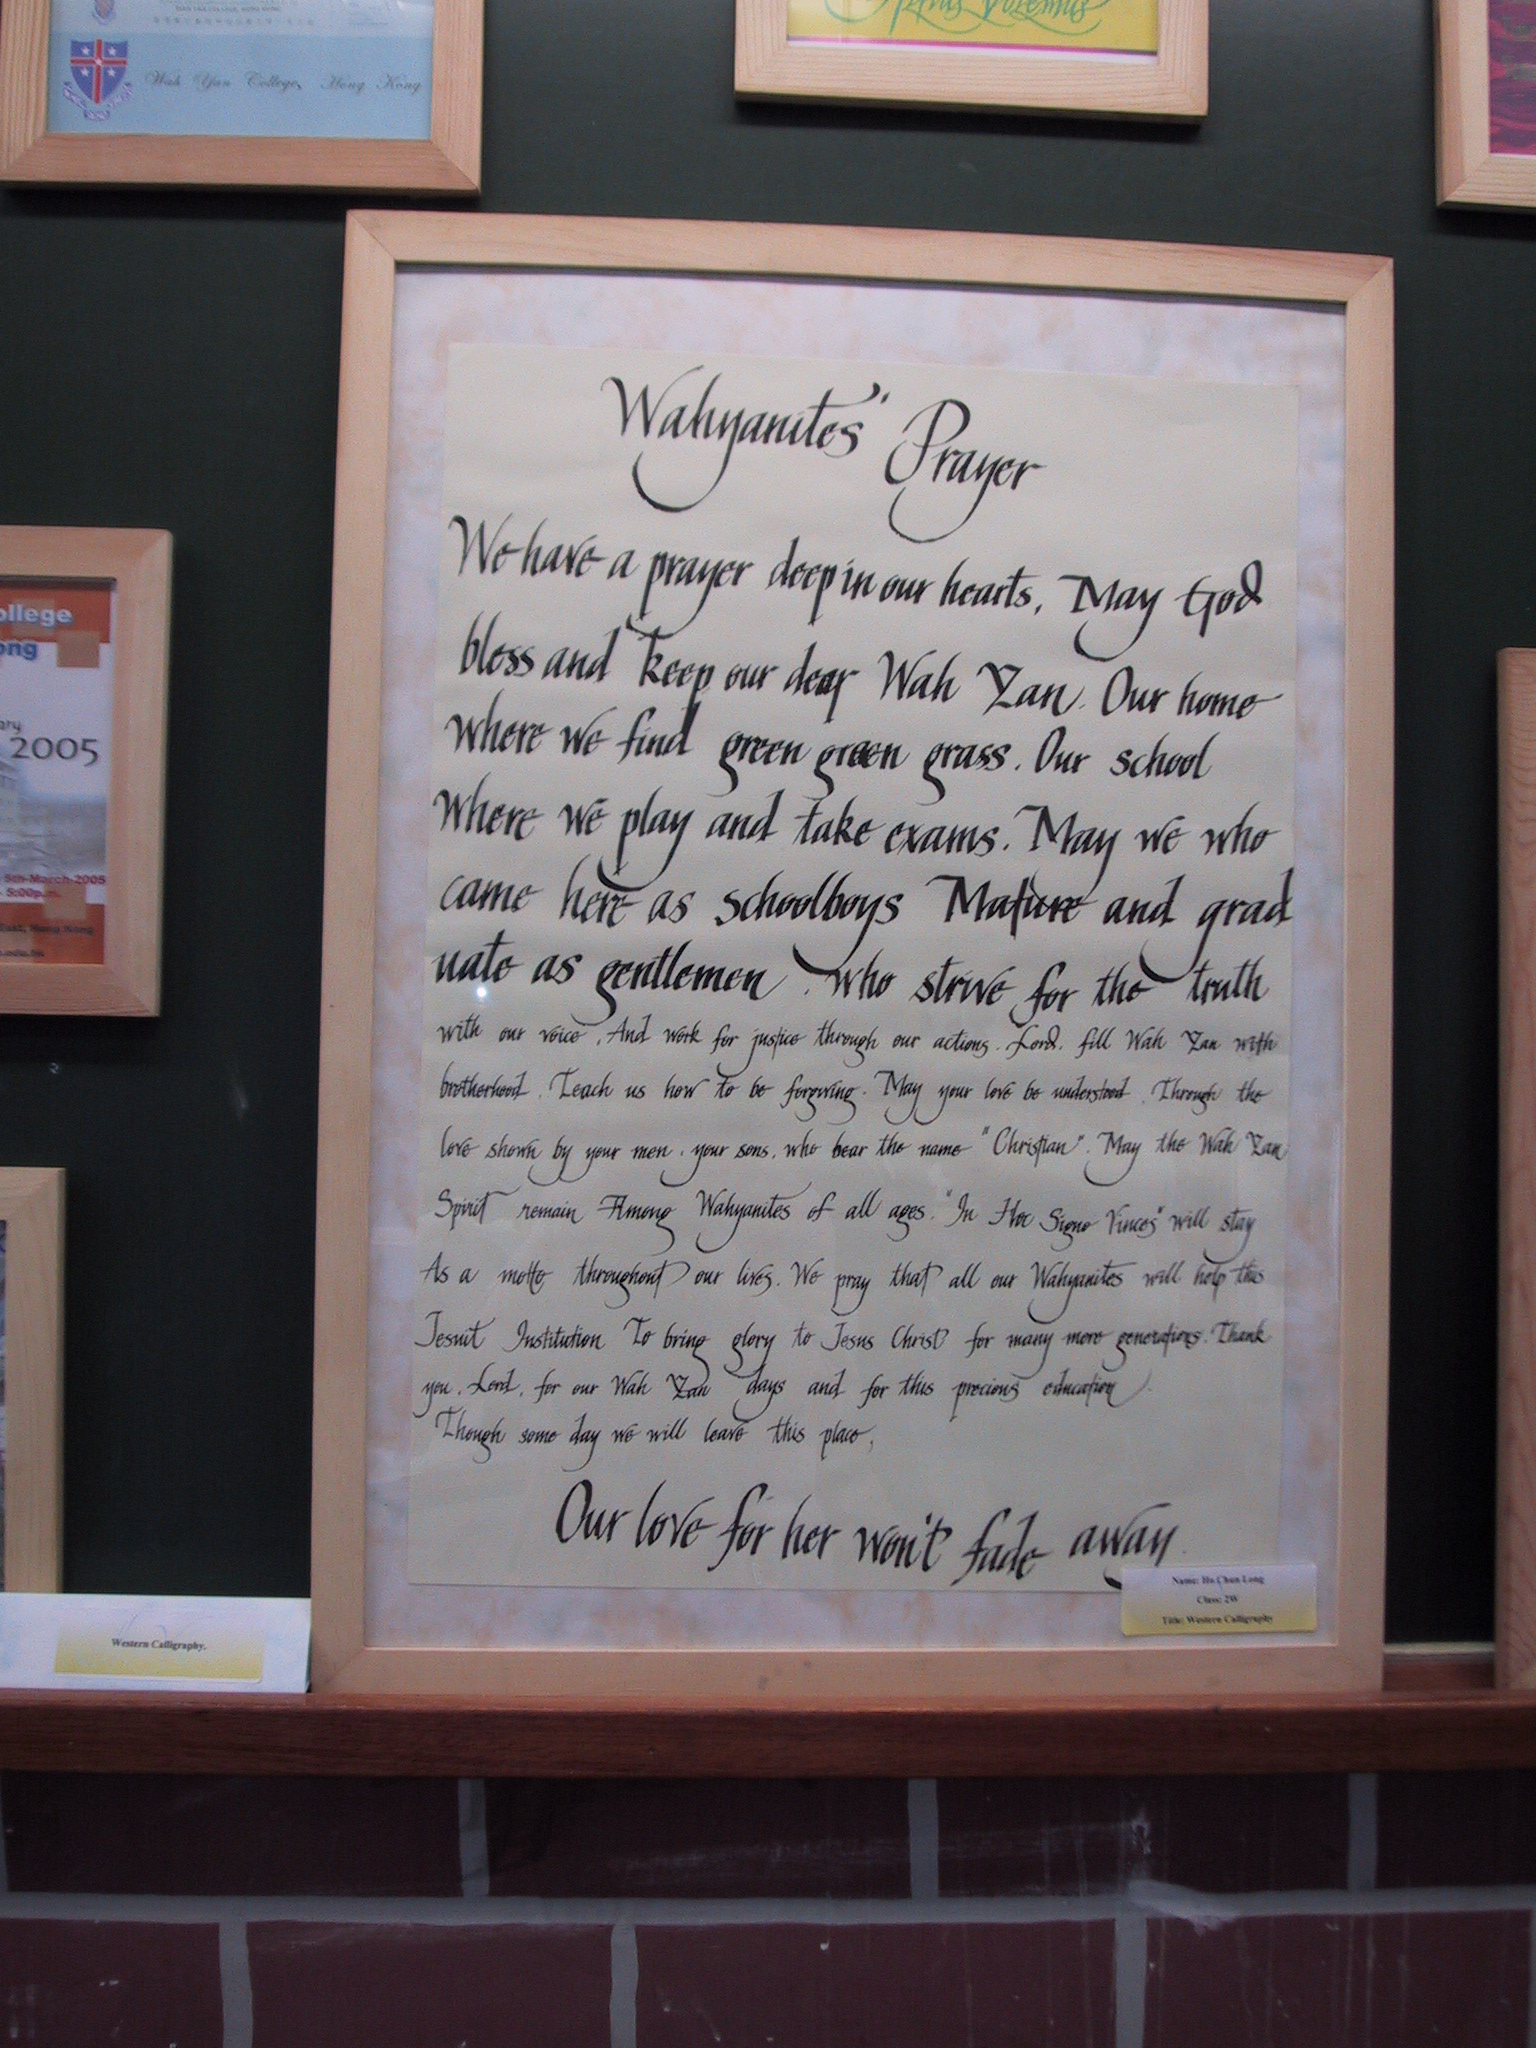 Wah Yan College, Hong Kong
Wahyanites' Prayer
We have a prayer deep in our hearts, May God
bless and keep our dear Wah Yan. Our home
where we find green green grass. Our school
where we play and take exams. May we who
came here as schoolboys Mature and grad
uate as gentlemen, who strive for the truth
with our voice, And work for justice through our actions. Lord, fill Wah Yan with
brotherhood. Teach us how to be forgiving. May your love be understood. Through the
love shown by your men, your sons, who bear the name "Christian". May the Wah Yan
Spirit remain Among Wahyanites of all ages. "In Hoc Signo Vinces" will stay
As a motto throughout our lives. We pray that all our Wahyanites will help this
Jesuit Institution To bring glory to Jesus Christ for many more generations. Thank
you, Lord, for our Wah Yan days and for this precious education.
Though some day we will leave this place,
Our love for her won't fade away.
Name: Ho Chun Long
Class: 2W
Title: Western Calligraphy
Western Calligraphy.
ollege
ong
ary
2005
5th-March-2005
5:00p.m.
East, Hong Kong